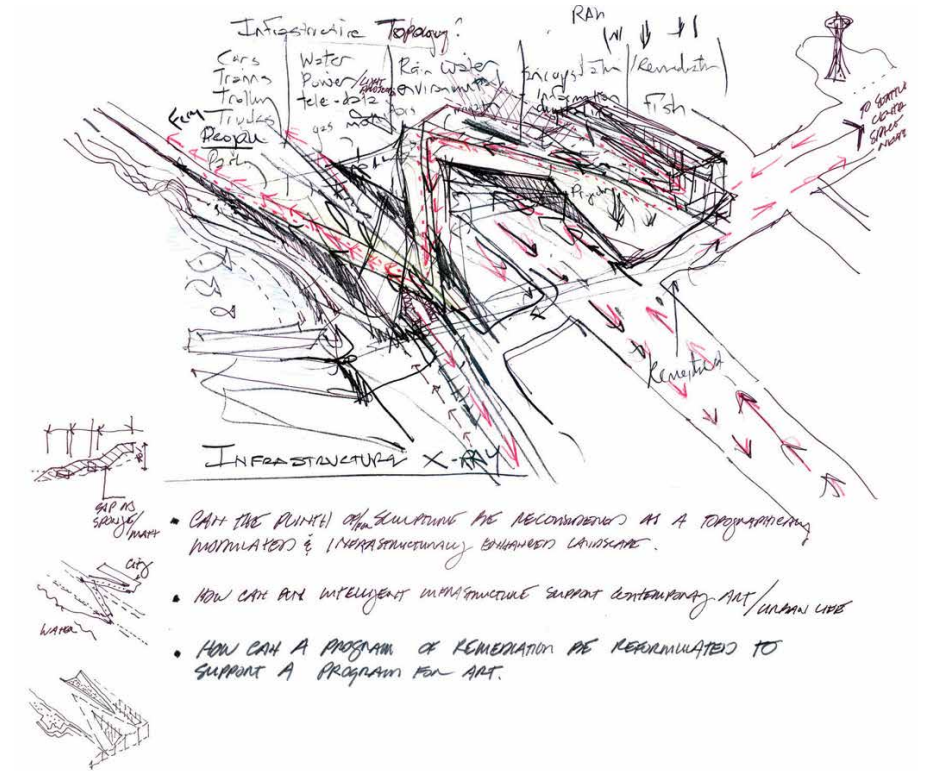 Infrastructure Topology?
RAIN
Cars
Trains
Trolley
Trucks
People
Water
Power/Light
tele-data
gas
Rain Water
environmental
Encapsulation
Information
Remediation
Fish
Ferry
TO SEATTLE
CENTER
SPACE
NEEDLE
INFRASTRUCTURE X-RAY
SLIP AS
SPONGE/
MAT
CITY
WATER
• CAN THE PLINTH OF/FOR SCULPTURE BE RECONSIDERED AS A TOPOGRAPHICALLY
MODULATED & INFRASTRUCTURALLY ENHANCED LANDSCAPE.
• HOW CAN AN INTELLIGENT INFRASTRUCTURE SUPPORT CONTEMPORARY ART/URBAN LIFE
• HOW CAN A PROGRAM OF REMEDIATION BE REFORMULATED TO
SUPPORT A PROGRAM FOR ART.